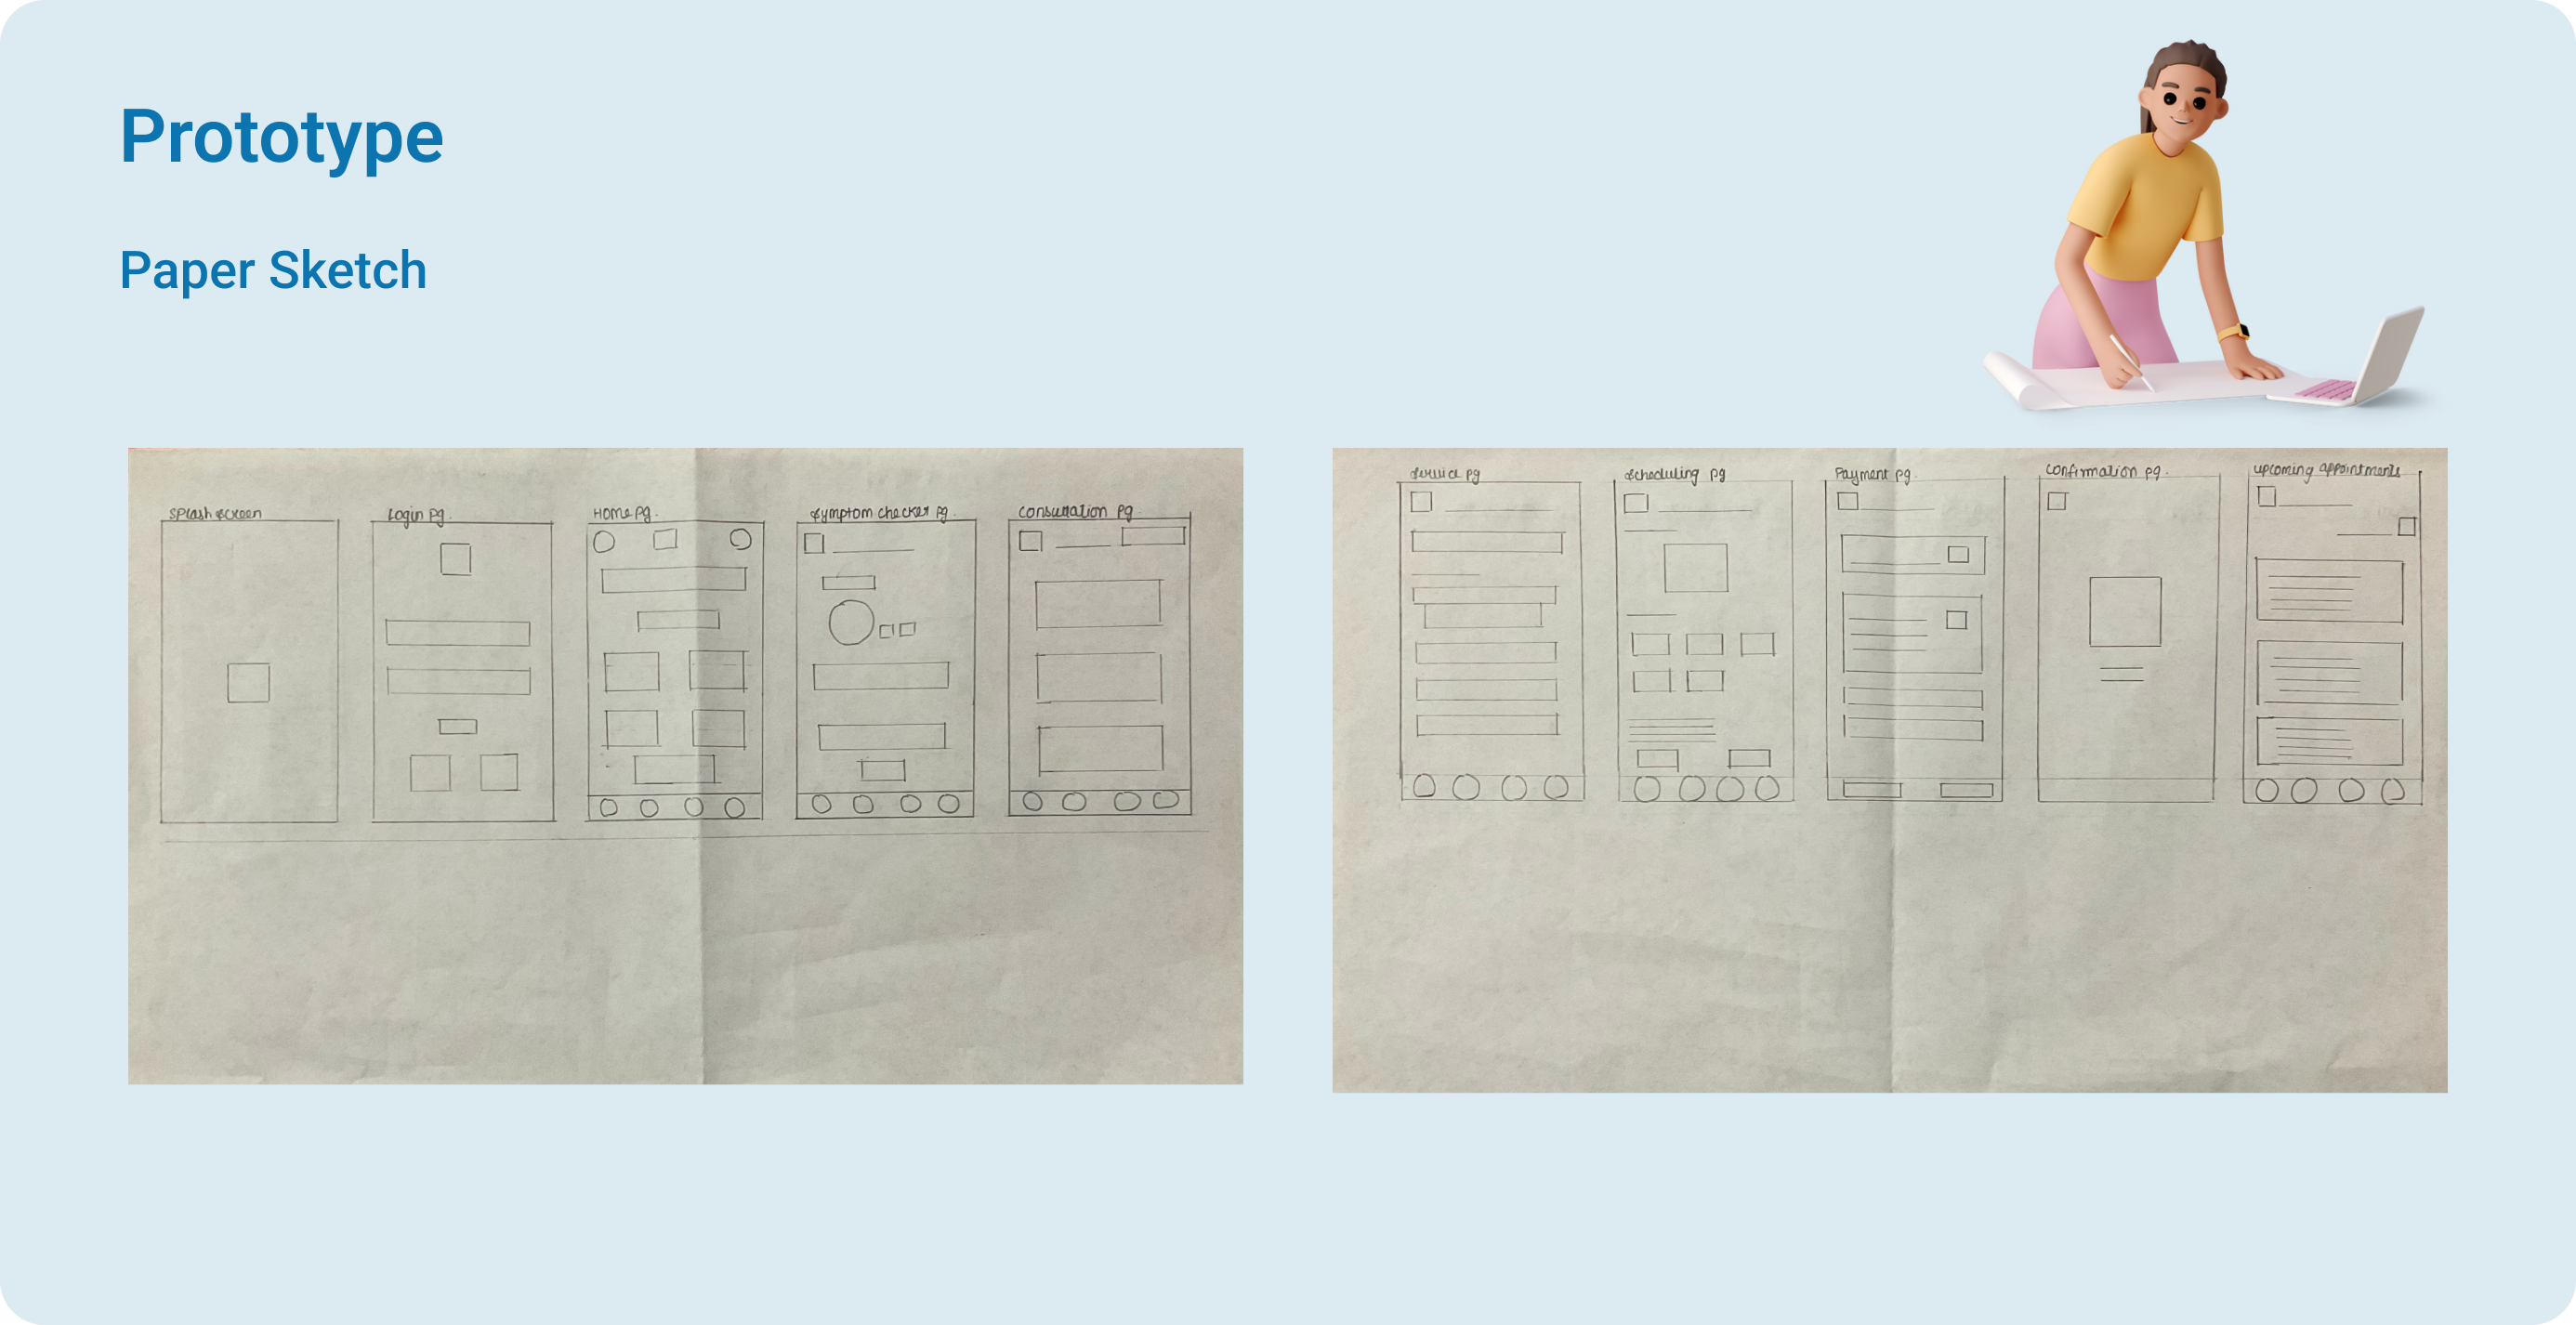 Prototype
Paper Sketch
splash screen
Login pg.
Home pg.
symptom checker pg.
consultation pg.
service pg
scheduling pg
Payment pg.
confirmation pg.
upcoming appointments